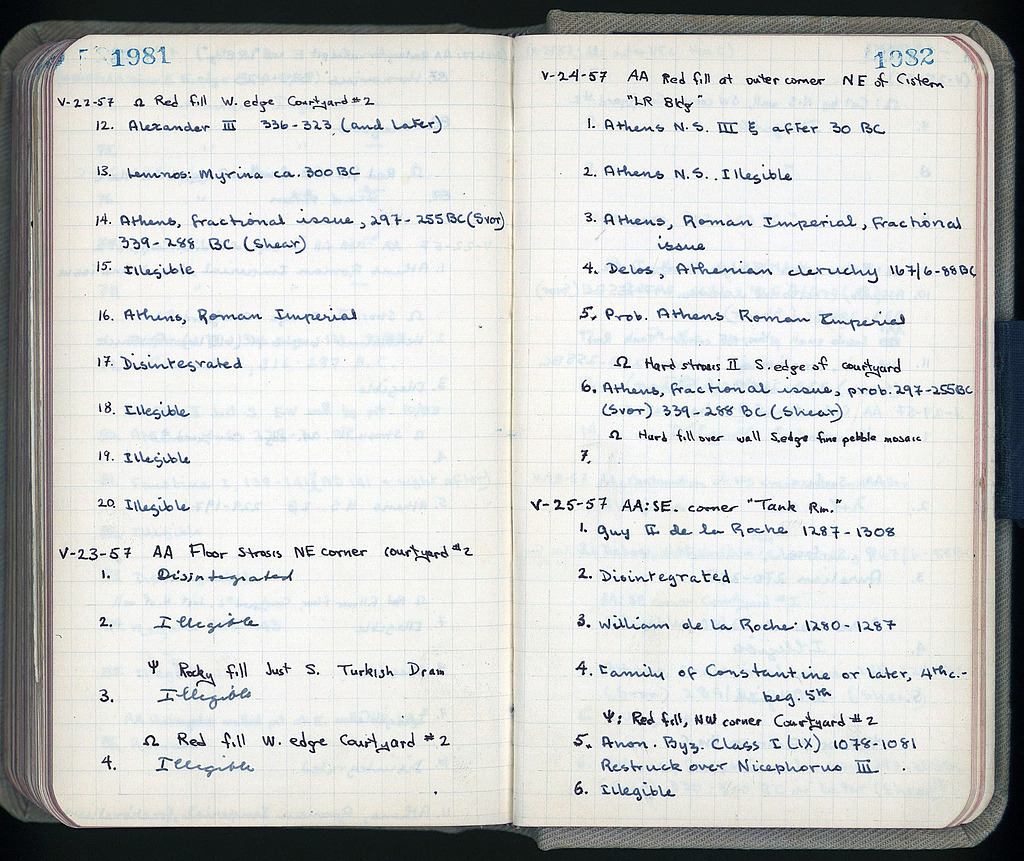 1981
V-22-57 Ω Red fill W. edge Courtyard #2
12. Alexander III 336-323 (and Later)
13. Lemnos: Myrina ca. 300 BC
14. Athens, fractional issue, 297-255 BC (Svor)
339-288 BC (Shear)
15. Illegible
16. Athens, Roman Imperial
17. Disintegrated
18. Illegible
19. Illegible
20. Illegible
V-23-57 AA Floor Strosis NE corner courtyard #2
1. Disintegrated
2. Illegible
Ψ Rocky fill Just S. Turkish Drain
3. Illegible
Ω Red fill W. edge Courtyard #2
4. Illegible
1982
V-24-57 AA Red fill at outer corner NE of Cistern
"LR Bldg"
1. Athens N.S. III ξ after 30 BC
2. Athens N.S.. Illegible
3. Athens, Roman Imperial, Fractional
issue
4. Delos, Athenian cleruchy 167/6-88 BC
5. Prob. Athens Roman Emperial
Ω Hard strosis II S. edge of courtyard
6. Athens, fractional issue, prob. 297-255 BC
(Svor) 339-288 BC (Shear)
Ω Hard fill over wall S.edge fine pebble mosaic
7.
V-25-57 AA: SE. corner "Tank Rm."
1. Guy II de la Roche 1287-1308
2. Disintegrated
3. William de la Roche 1280-1287
4. Family of Constantine or later, 4th c.-
beg. 5th
Ψ: Red fill, NW corner Courtyard #2
5. Anon. Byz. Class I (IX) 1078-1081
Restruck over Nicephorus III
6. Illegible